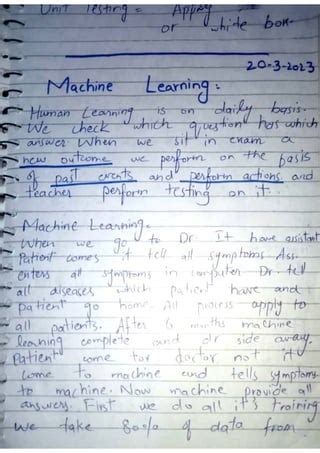 Unit Testing = Apply
or white box
20-3-2023
Machine Learning:
Human Learning is on daily basis.
We check which question has which
answer. When we sit in exam a
new outcome we perform on the basis
of past events and perform actions. and
teacher perform testing on it.
Machine Learning.
When we go to Dr. It have assistant
Patient comes it tell all symptoms Ass.
enters all symptoms in computer Dr tell
all diseases which patient have and
patient go home. All process apply to
all patients. After 6 months machine
learning complete and dr side away.
Patient come for doctor not it
come to machine and tells symptoms
to machine. Now machine provide all
answers. First we do all it's training
we take 80% of data from